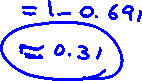 = 1 - 0.691
≈ 0.31